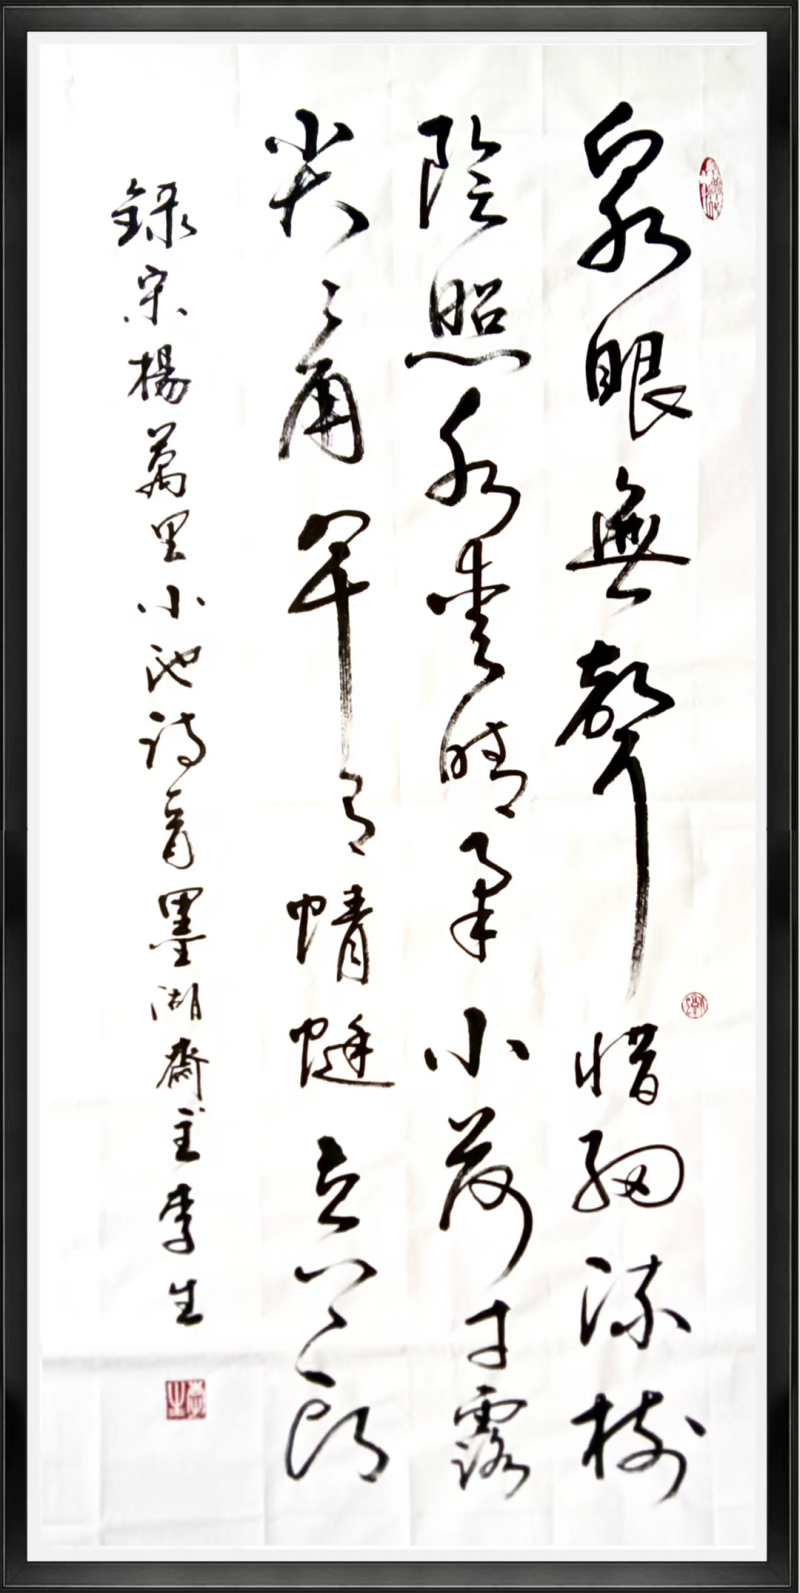 泉眼無聲惜細流樹
陰照水愛晴柔小荷才露
尖々角早有蜻蜓立上頭
錄宋楊萬里小池詩一首墨湖齋主李生